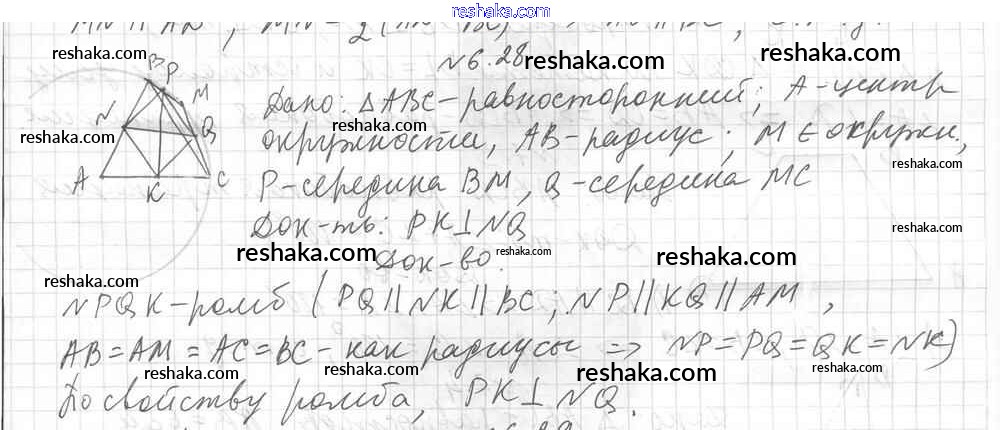 www.reshaka.com
MN || AK,
reshaka.com
N 6.28
reshaka.com
B P
M
N
Q
A
K
C
reshaka.com
reshaka.com
Дано: △ABC – равносторонний; A – центр
окружности, AB – радиус; M ∈ окружн.,
reshaka.com
reshaka.com
P – середина BM, Q – середина MC
Док-ть: PK ⊥ NQ
reshaka.com
reshaka.com
reshaka.com
Док-во.
reshaka.com
reshaka.com
NPQK – ромб (PQ || NK || BC; NP || KQ || AM,
reshaka.com
AB = AM = AC = BC – как радиусы => NP = PQ = QK = NK)
reshaka.com
reshaka.com
reshaka.com
По свойству ромба, PK ⊥ NQ.